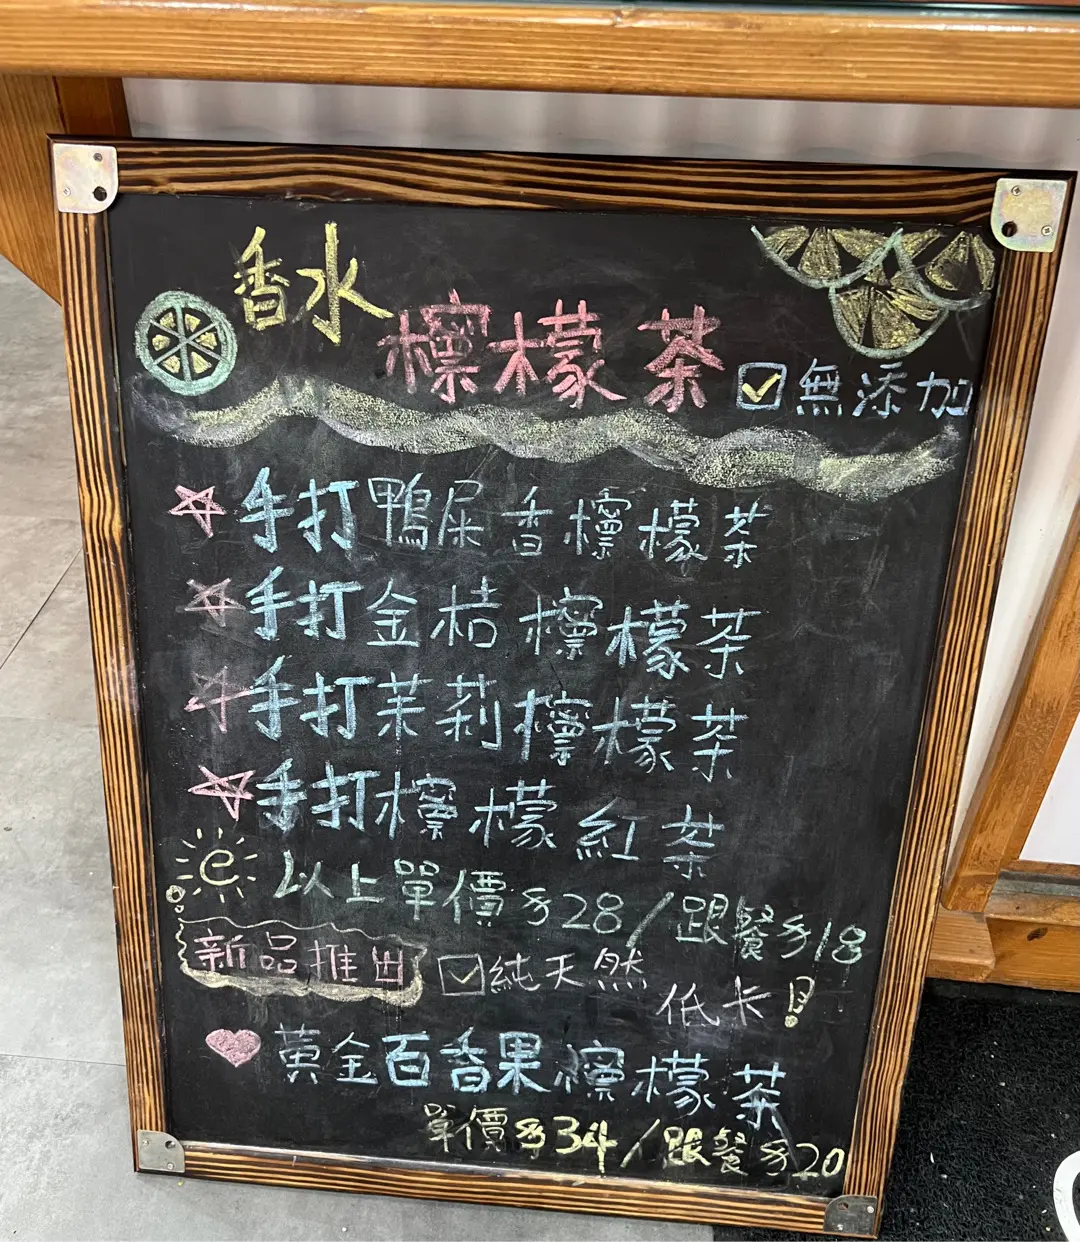 香水
檸檬茶 ☑無添加
手打鴨屎香檸檬茶
手打金桔檸檬茶
手打茉莉檸檬茶
手打檸檬紅茶
以上單價$28/跟餐$18
新品推出 ☑純天然
低卡!
黃金百香果檸檬茶
單價$34/跟餐$20